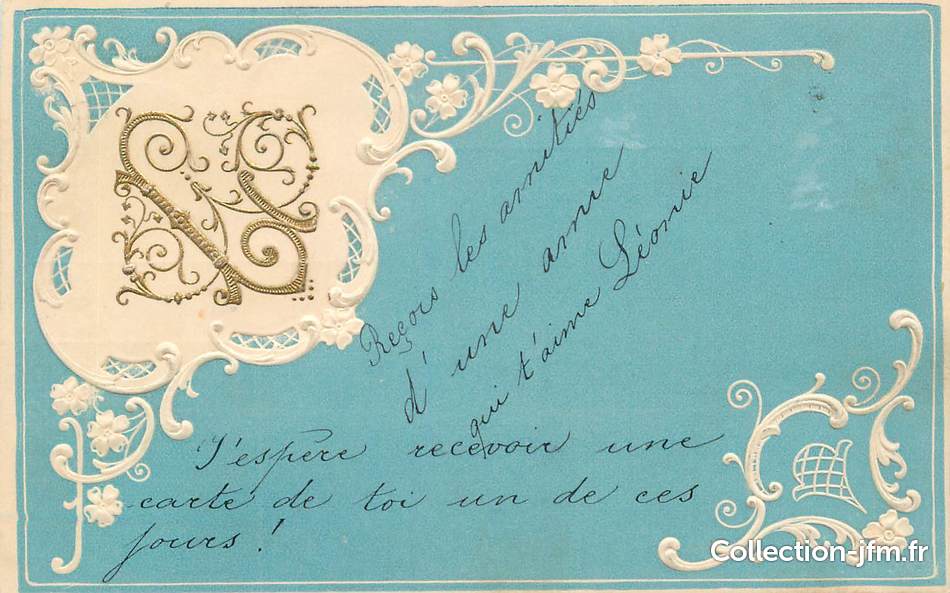 N
Reçois les amitiés
d'une amie
qui t'aime Léonie
J'espère recevoir une
carte de toi un de ces
jours!
Collection-jfm.fr